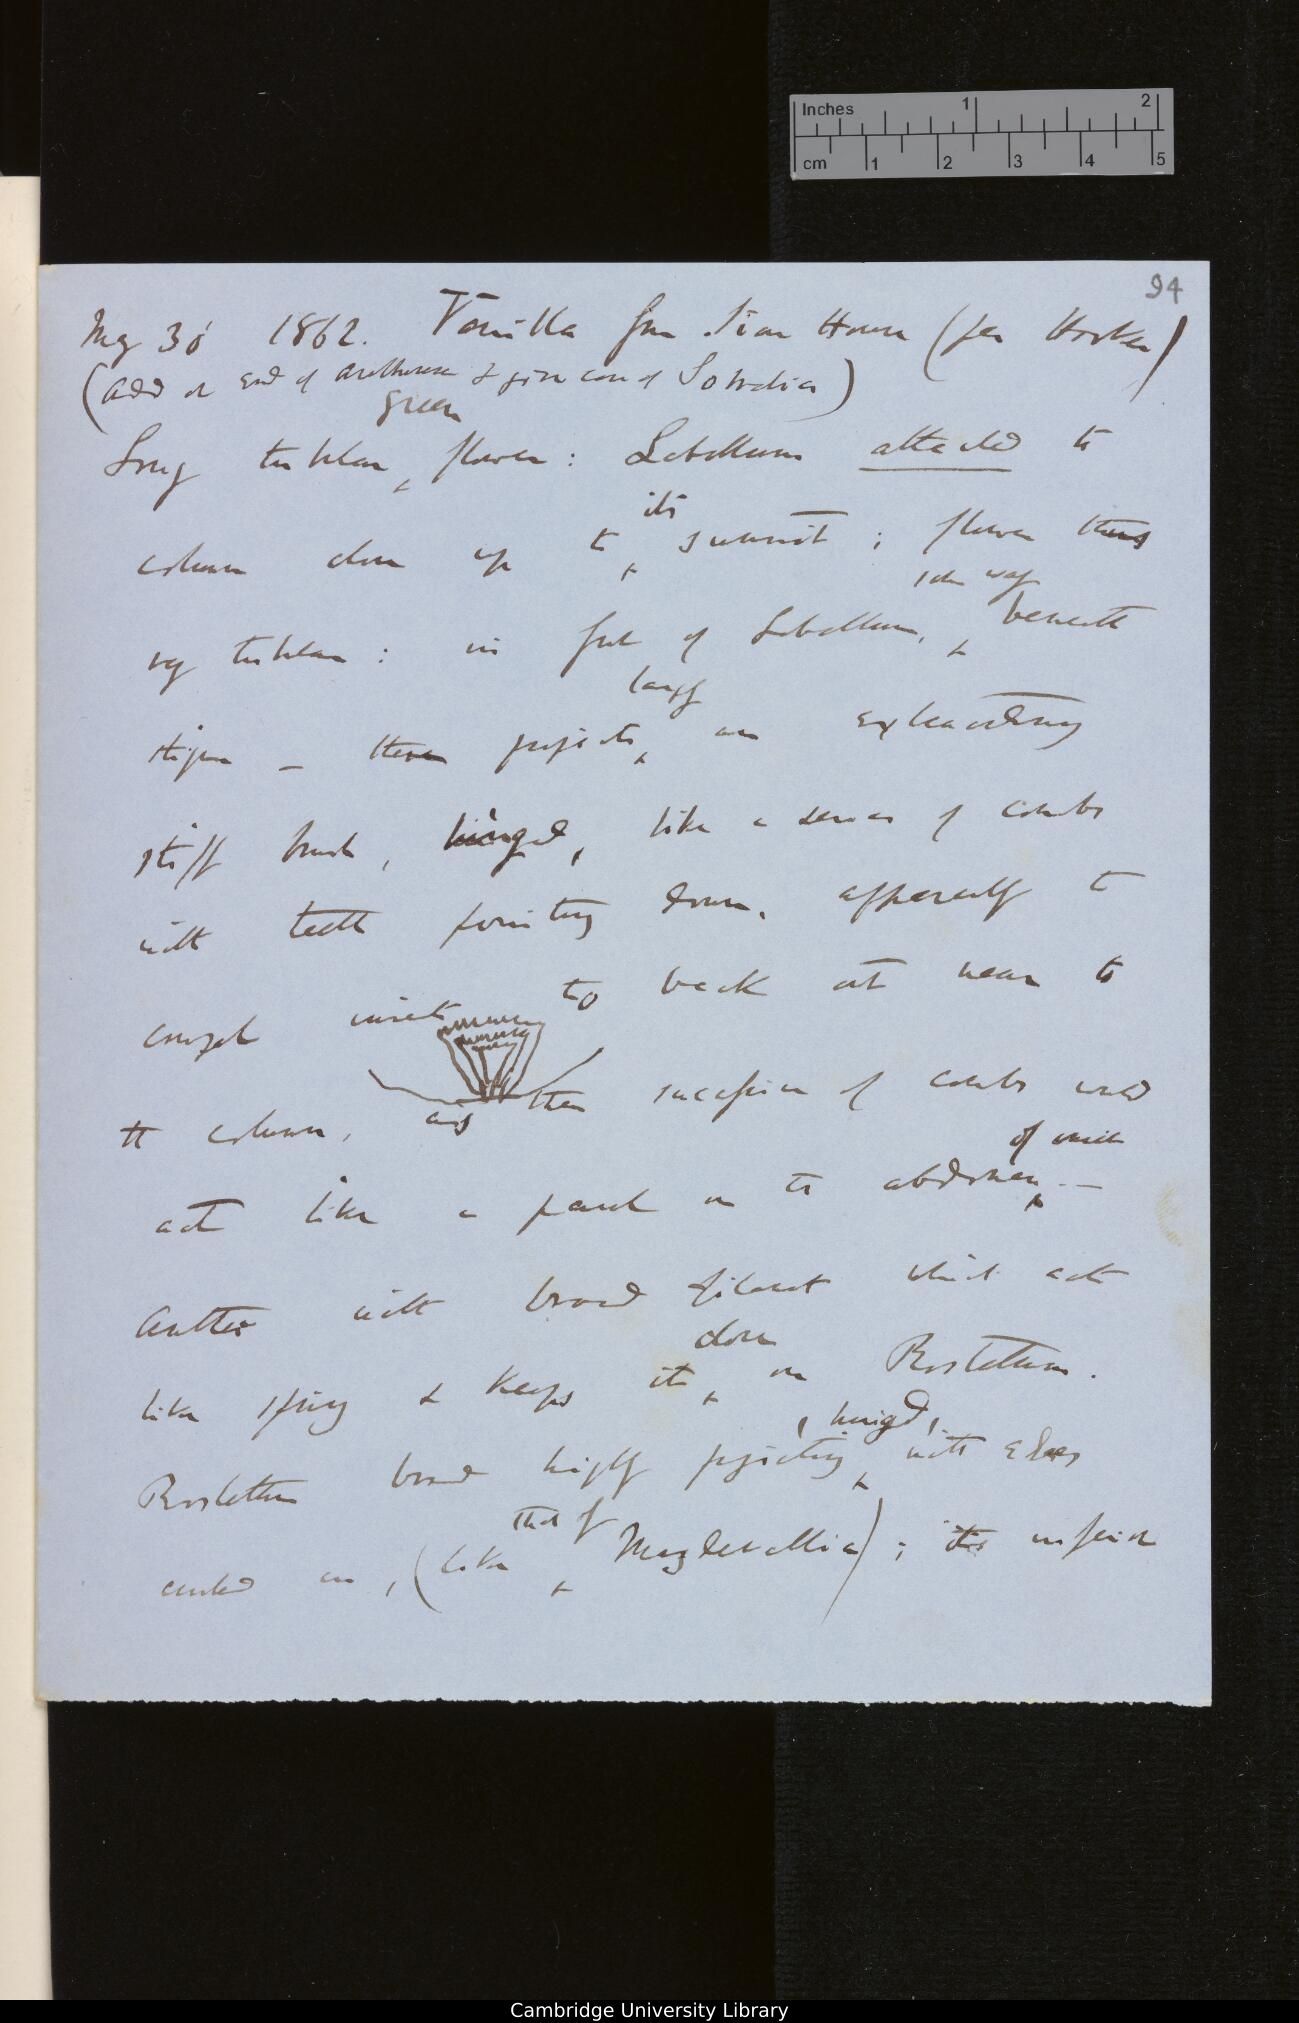 94
May 30 1862. Vanilla from Sion House (per Hooker)
(Add at end of Arethuseæ & give case of Sobralia)
green
Long tubular flower: Labellum attached to
its
column close up to summit; flower thus
some way
very tubular: in front of Labellum, beneath
largely
stigma — there projects an extraordinary
stiff brush, hinged, like a series of combs
with teeth pointing down, apparently to
compel insect to back out near to
the column, and then succession of combs would
of insect
act like a on to abdomen —
Anther with broad filament which acts
down
like spring & keeps it on Rostellum.
, hinged,
Rostellum broad highly projecting with edges
that of
curled in, (like Masdevallia); its inferior
Inches 1 2
cm 1 2 3 4 5
Cambridge University Library